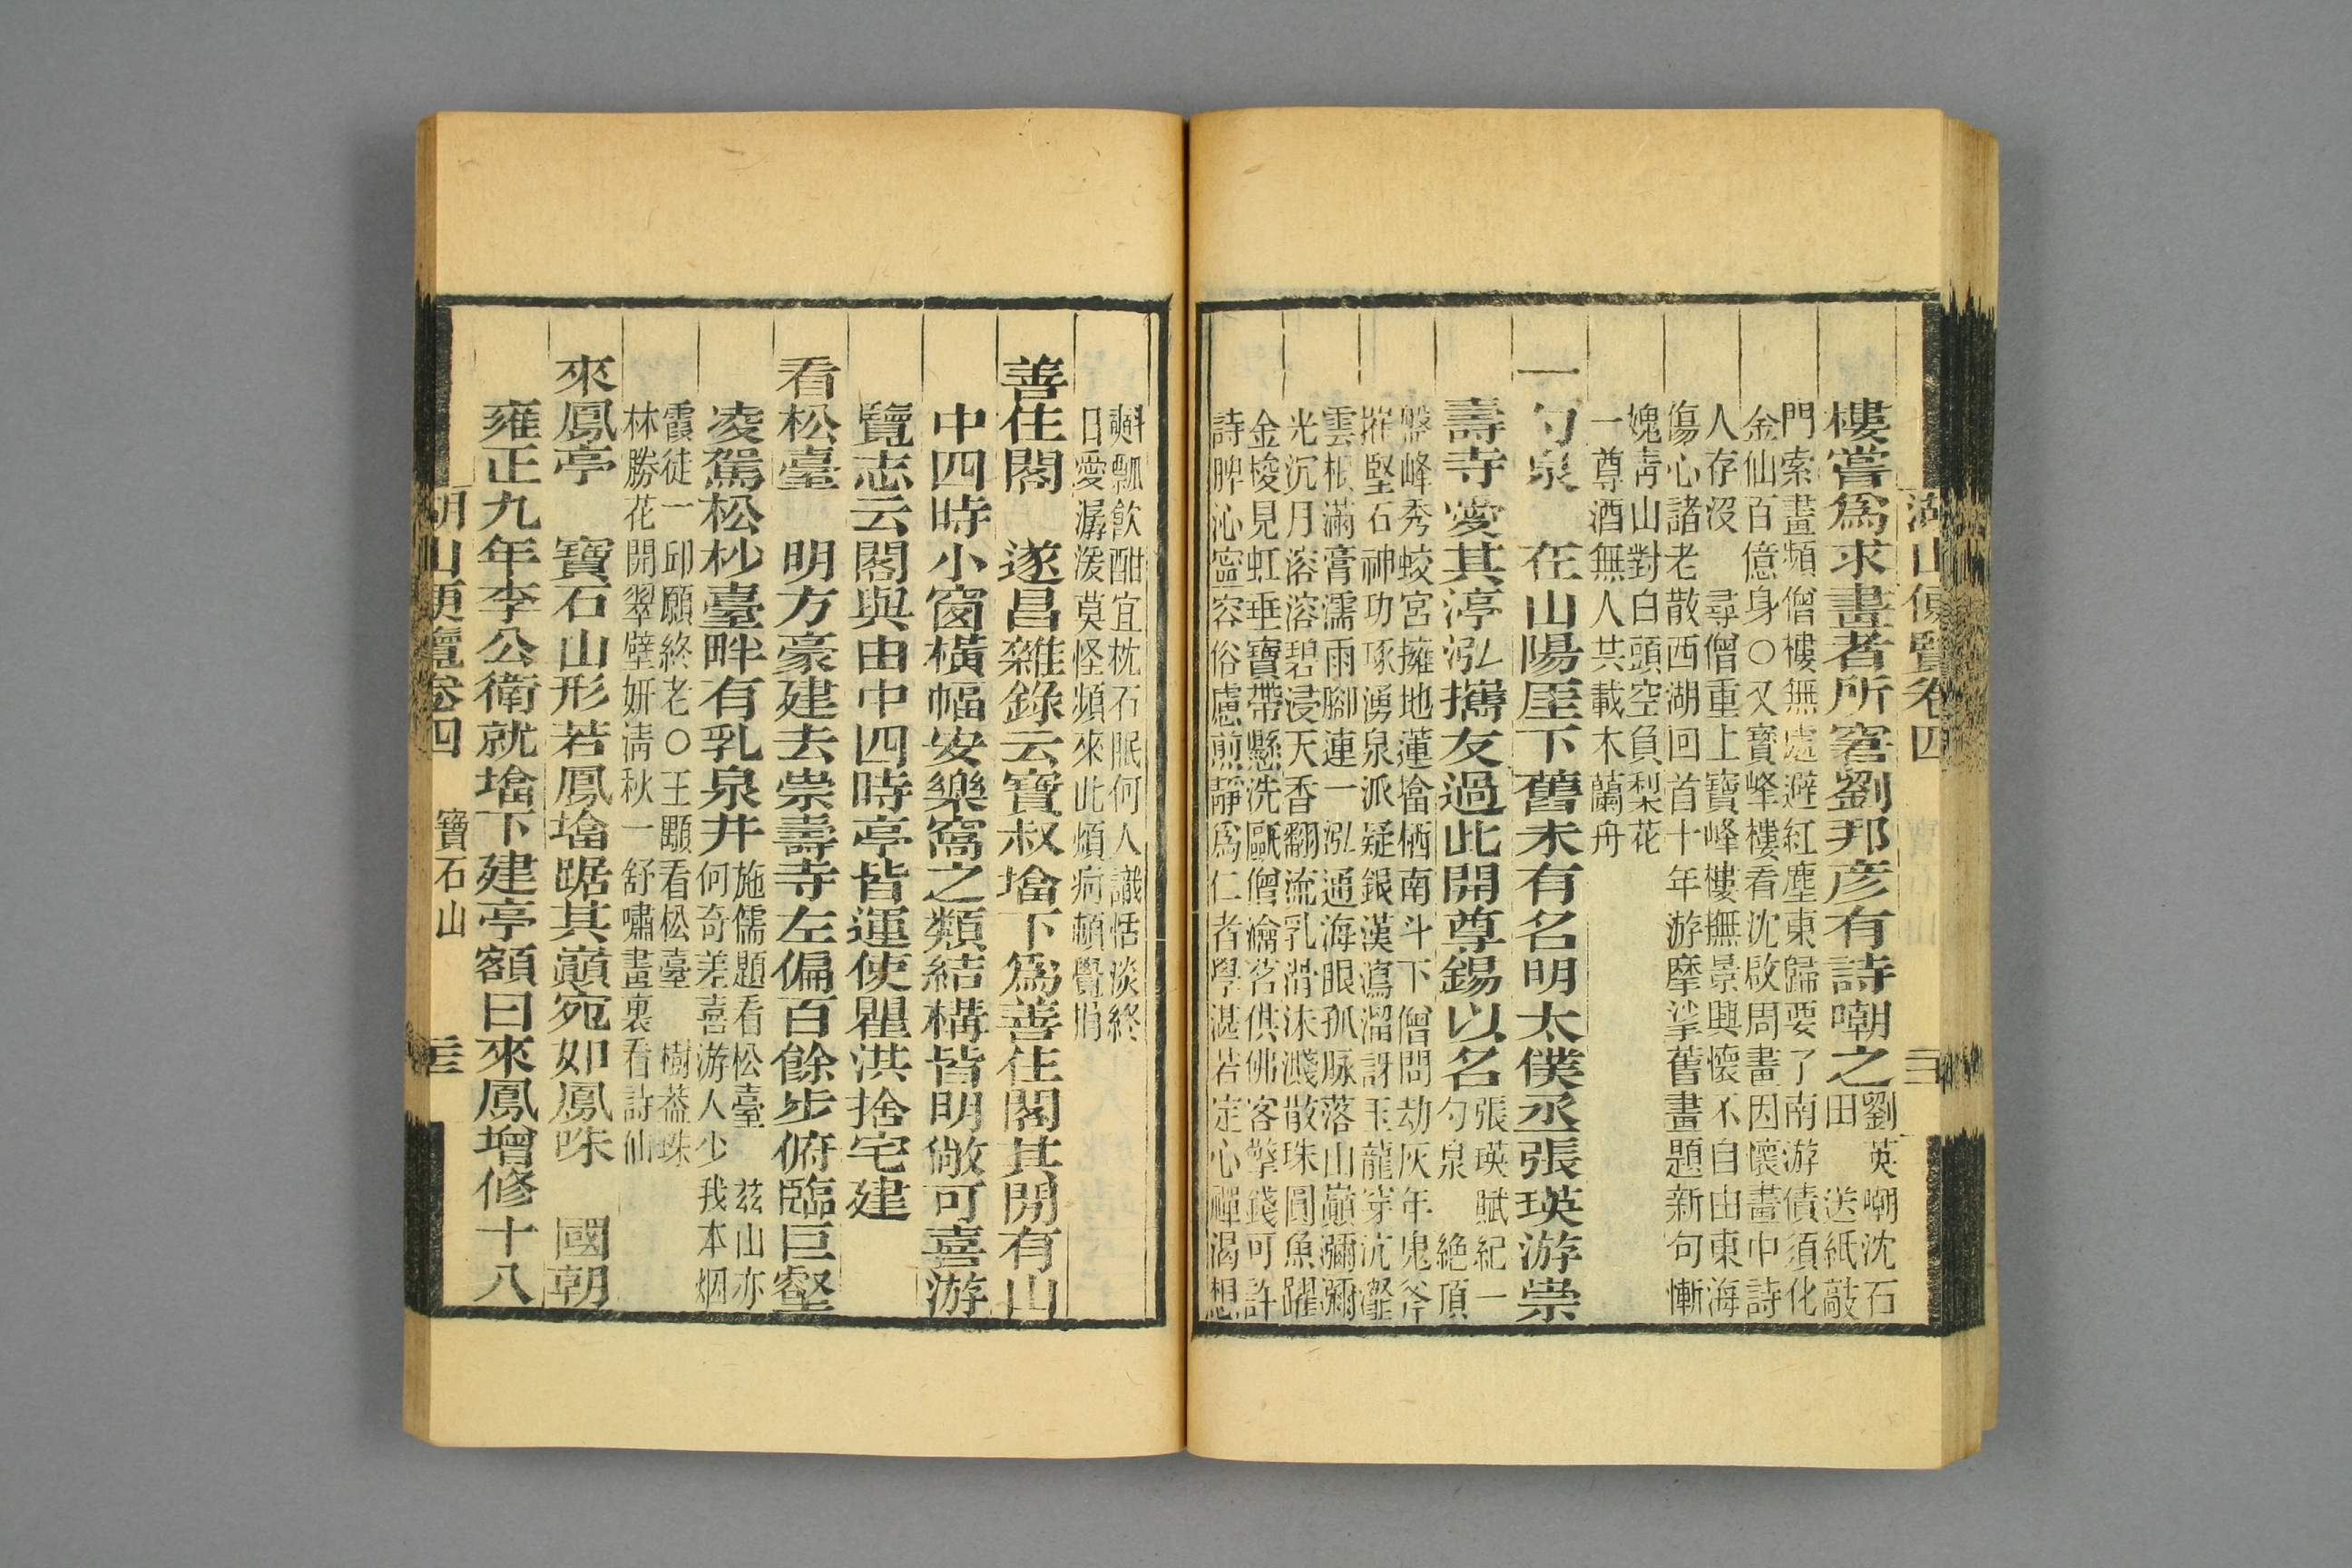 湖山便覽卷四
樓嘗爲求畫者所窘劉邦彦有詩嘲之
劉英嘲沈石
田 送紙敲
門索畫頻僧樓無處避紅塵東歸要了南游債須化
金仙百億身○又寶峰樓看沈啟周畫因懷畫中詩
人存沒 尋僧重上寶峰樓撫景興懷不自由東海
傷心諸老散西湖回首十年游摩挲舊畫題新句慚
媿靑山對白頭空負梨花
一尊酒無人共載木蘭舟
一勺泉 在山陽厓下舊未有名明太僕丞張瑛游崇
壽寺愛其渟泓攜友過此開尊錫以名
張瑛賦紀一
勺泉 絶頂
盤峰秀蛟宮擁地蓮墖栖南斗下僧問劫灰年鬼斧
摧堅石神功琢湧泉派疑銀漢瀉溜訝玉龍穿沆瀣
雲根滿膏濡雨腳連一泓通海眼孤脉落山巔瀰瀰
光沉月溶溶碧浸天香翻流乳滑沫濺散珠圓魚躍
金梭見虹垂寶帶懸洗甌僧瀹茗供佛客擎錢可許
詩脾沁寧容俗慮煎靜爲仁者學湛若定心禪渴想
㪺瓢飮酣宜枕石眠何人識恬淡終
日愛潺湲莫怪頻來此煩疴頓覺捐
善住閣 遂昌雜錄云寶叔墖下爲善住閣其閒有山
中四時小窗橫幅安樂窩之類結構皆明敞可喜游
覽志云閣與由中四時亭皆運使瞿洪捨宅建
看松臺 明方豪建去崇壽寺左偏百餘步俯臨巨壑
凌駕松杪臺畔有乳泉井
施儒題看松臺 茲山亦
何奇差喜游人少我本烟
霞徒一邱願終老○王顒看松臺 樹葢珠
林勝花開翠壁妍淸秋一舒嘯畫裏看詩仙
來鳳亭 寶石山形若鳳墖踞其巔宛如鳳咮 國朝
雍正九年李公衛就墖下建亭額曰來鳳增修十八
湖山便覽卷四 寶石山